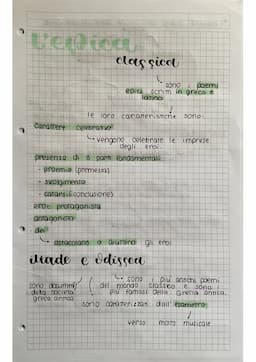 L'epica
classica
sono i poemi
epici scritti in greco e
latino
le loro caratteristiche sono:
carattere celebrativo
vengono celebrate le imprese
degli eroi
presenza di 3 parti fondamentali:
- proemio (premessa)
- svolgimento
- catarsi (conclusione)
eroe protagonista
antagonista
dei
ostacolano o aiutano gli eroi
iliade e odissea
sono i più antichi poemi
sono documenti del mondo classico e sono
della società i più famosi della Grecia antica.
greca antica
sono caratterizzati dall'esametro
verso molto musicale